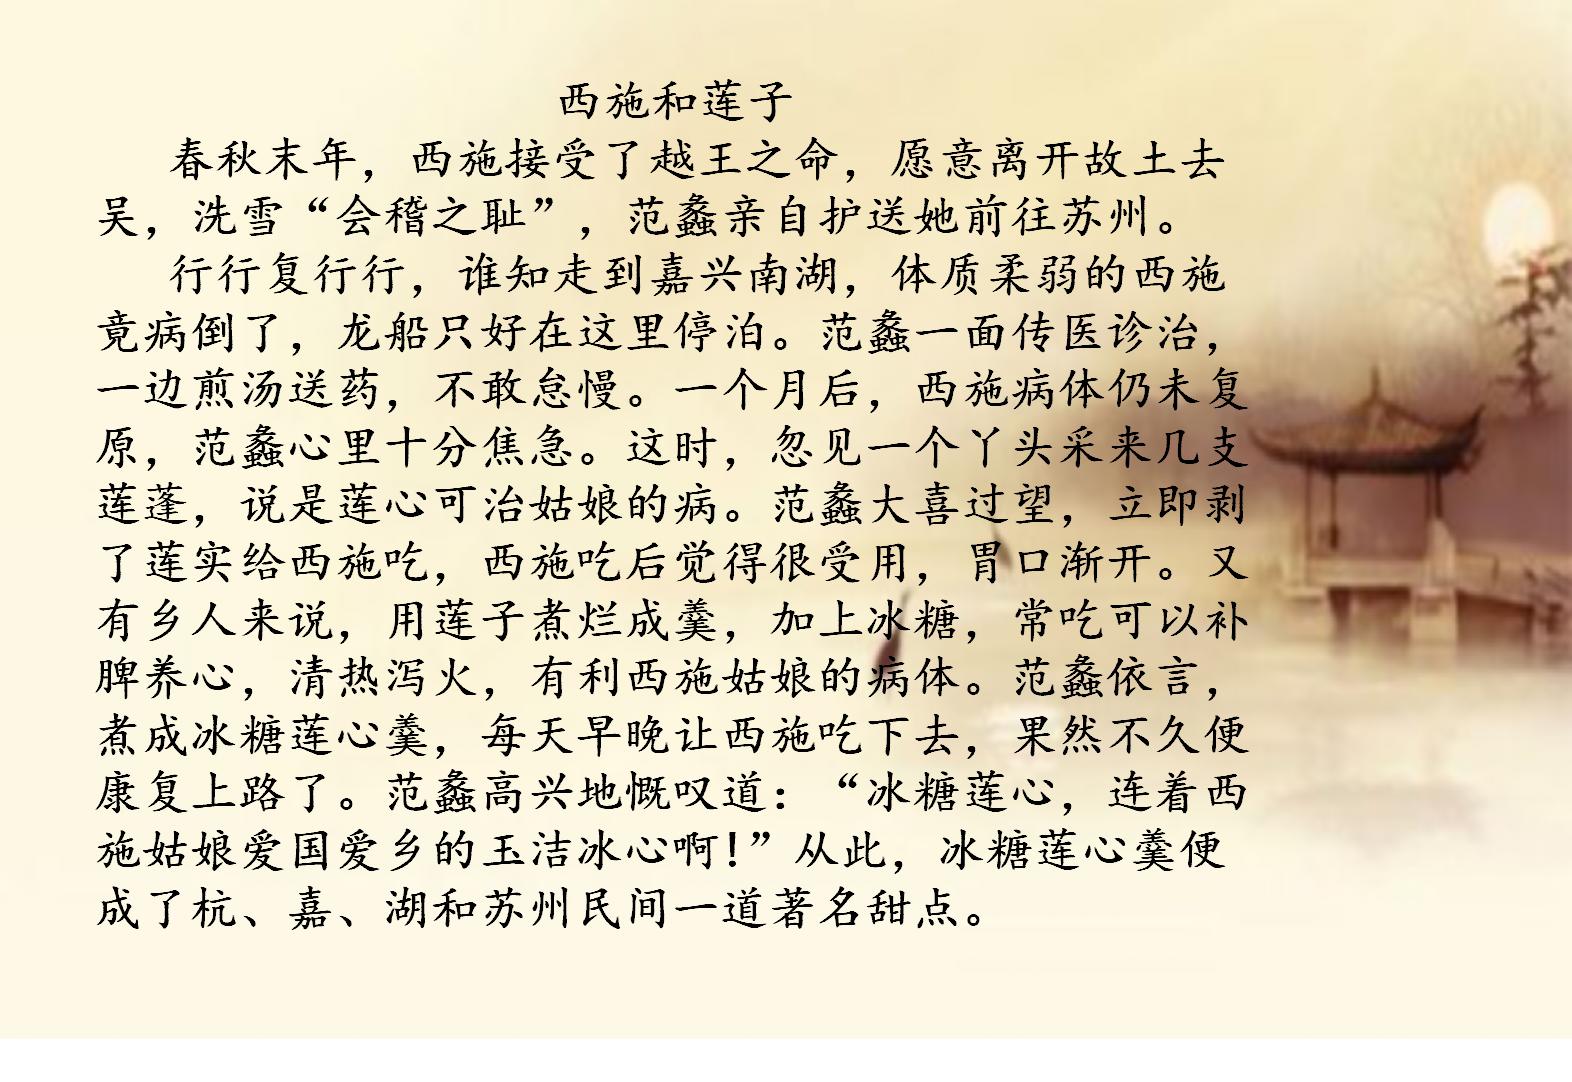 西施和莲子
春秋末年，西施接受了越王之命，愿意离开故土去
吴，洗雪“会稽之耻”，范蠡亲自护送她前往苏州。
行行复行行，谁知走到嘉兴南湖，体质柔弱的西施
竟病倒了，龙船只好在这里停泊。范蠡一面传医诊治，
一边煎汤送药，不敢怠慢。一个月后，西施病体仍未复
原，范蠡心里十分焦急。这时，忽见一个丫头采来几支
莲蓬，说是莲心可治姑娘的病。范蠡大喜过望，立即剥
了莲实给西施吃，西施吃后觉得很受用，胃口渐开。又
有乡人来说，用莲子煮烂成羹，加上冰糖，常吃可以补
脾养心，清热泻火，有利西施姑娘的病体。范蠡依言，
煮成冰糖莲心羹，每天早晚让西施吃下去，果然不久便
康复上路了。范蠡高兴地慨叹道：“冰糖莲心，连着西
施姑娘爱国爱乡的玉洁冰心啊！”从此，冰糖莲心羹便
成了杭、嘉、湖和苏州民间一道著名甜点。